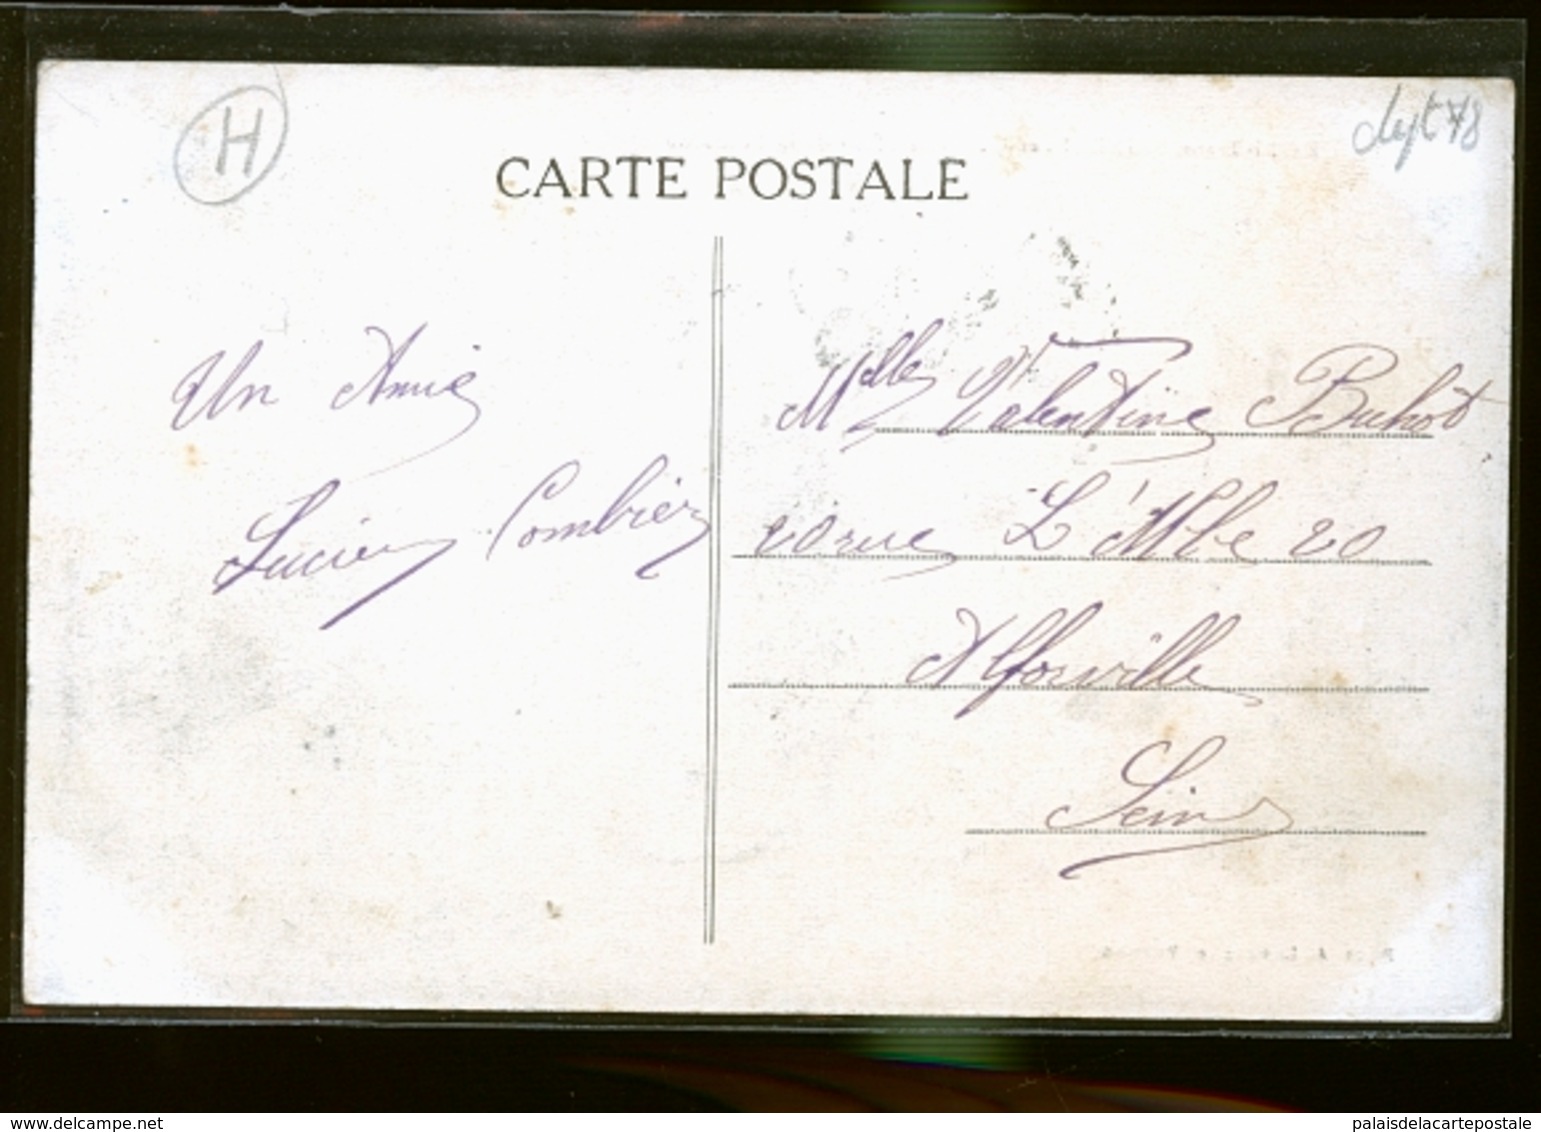 H
dept 78
CARTE POSTALE
Un Amie
Lucien Combier
Melle Valentine Buhot
20 rue L'Alle 20
Alforville
Seine
www.delcampe.net
palaisdelacartepostale